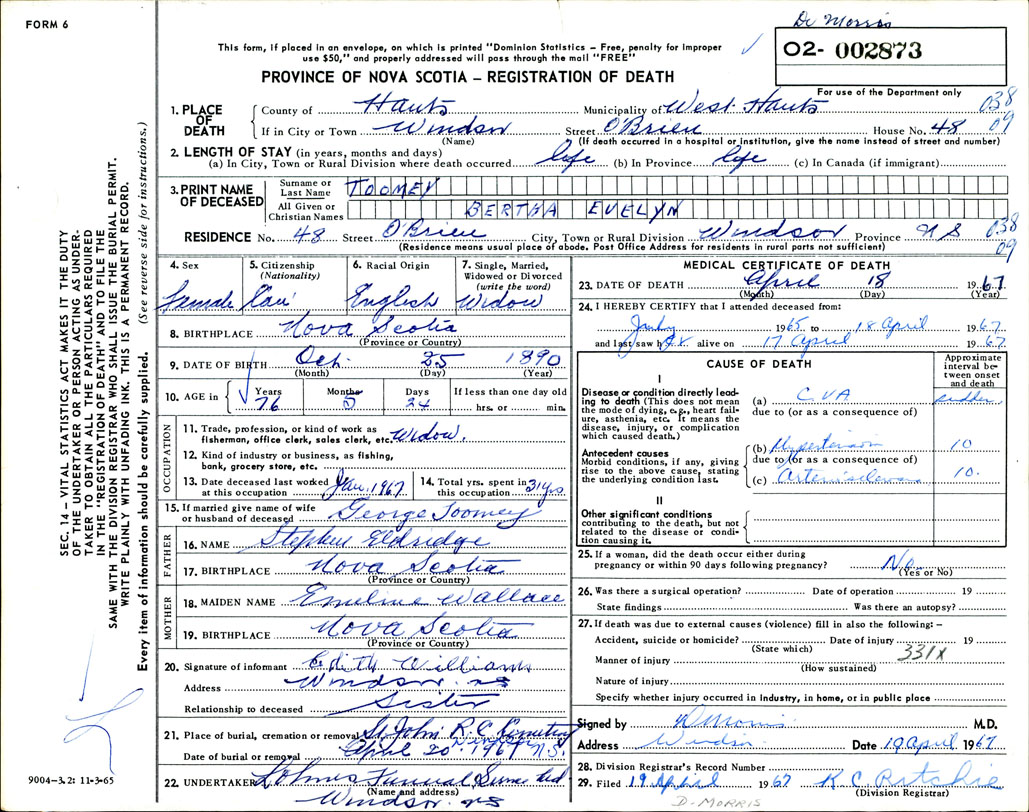 FORM 6
Dr Morris
This form, if placed in an envelope, on which is printed "Dominion Statistics – Free, penalty for improper
use $50," and properly addressed will pass through the mail "FREE"
02- 002873
PROVINCE OF NOVA SCOTIA – REGISTRATION OF DEATH
For use of the Department only
038
09
1. PLACE OF DEATH
County of Hants Municipality of West Hants
If in City or Town Windsor Street O'Brien House No. 48
(Name) (If death occurred in a hospital or institution, give the name instead of street and number)
2. LENGTH OF STAY (in years, months and days)
(a) In City, Town or Rural Division where death occurred life (b) In Province life (c) In Canada (if immigrant)
3. PRINT NAME OF DECEASED
Surname or Last Name TOOMEY
All Given or Christian Names BERTHA EVELYN
RESIDENCE No. 48 Street O'Brien City, Town or Rural Division Windsor Province N S
038
09
(Residence means usual place of abode. Post Office Address for residents in rural parts not sufficient)
4. Sex
Female
5. Citizenship (Nationality)
Can
6. Racial Origin
English
7. Single, Married, Widowed or Divorced (write the word)
Widow
8. BIRTHPLACE Nova Scotia
(Province or Country)
9. DATE OF BIRTH Oct. 25 1890
(Month) (Day) (Year)
10. AGE in
Years Months Days If less than one day old
76 5 24 hrs. or min.
OCCUPATION
11. Trade, profession, or kind of work as
fisherman, office clerk, sales clerk, etc. Widow.
12. Kind of industry or business, as fishing,
bank, grocery store, etc.
13. Date deceased last worked at this occupation Jan. 1967
14. Total yrs. spent in this occupation 31 yrs
15. If married give name of wife
or husband of deceased George Toomey
FATHER
16. NAME Stephen Eldridge
17. BIRTHPLACE Nova Scotia
(Province or Country)
MOTHER
18. MAIDEN NAME Emeline Wallace
19. BIRTHPLACE Nova Scotia
(Province or Country)
20. Signature of informant Edith Williams
Address Windsor. NS
Relationship to deceased Sister
21. Place of burial, cremation or removal St John R.C. Cemetery
Windsor N.S.
Date of burial or removal April 20 1967
22. UNDERTAKER Lohnes Funeral Service Ltd
(Name and address)
Windsor. NS
MEDICAL CERTIFICATE OF DEATH
23. DATE OF DEATH April 18 1967
(Month) (Day) (Year)
24. I HEREBY CERTIFY that I attended deceased from:
1965 to 18 April 1967
and last saw her alive on 17 April 1967
CAUSE OF DEATH
Approximate interval between onset and death
I
Disease or condition directly leading to death (This does not mean the mode of dying, e.g., heart failure, asthenia, etc. It means the disease, injury, or complication which caused death.)
(a) CVA sudden
due to (or as a consequence of)
Antecedent causes
Morbid conditions, if any, giving rise to the above cause, stating the underlying condition last.
(b) Hypertension 10
due to (or as a consequence of)
(c) Arteriosclerosis 10.
II
Other significant conditions
contributing to the death, but not related to the disease or condition causing it.
25. If a woman, did the death occur either during
pregnancy or within 90 days following pregnancy? No
(Yes or No)
26. Was there a surgical operation? Date of operation 19
State findings Was there an autopsy?
27. If death was due to external causes (violence) fill in also the following: –
Accident, suicide or homicide? Date of injury 19
(State which)
331X
Manner of injury
(How sustained)
Nature of injury
Specify whether injury occurred in industry, in home, or in public place
Signed by D Morris M.D.
Address Windsor Date 19 April 1967
28. Division Registrar's Record Number
29. Filed 19 April 1967 R C Ritchie
(Division Registrar)
D-MORRIS
SEC. 14 – VITAL STATISTICS ACT MAKES IT THE DUTY
OF THE UNDERTAKER OR PERSON ACTING AS UNDER-
TAKER TO OBTAIN ALL THE PARTICULARS REQUIRED
IN THE "REGISTRATION OF DEATH" AND TO FILE THE
SAME WITH THE DIVISION REGISTRAR WHO SHALL ISSUE THE BURIAL PERMIT.
WRITE PLAINLY WITH UNFADING INK. THIS IS A PERMANENT RECORD.
Every item of information should be carefully supplied. (See reverse side for instructions.)
9004-3.2: 11-3-65